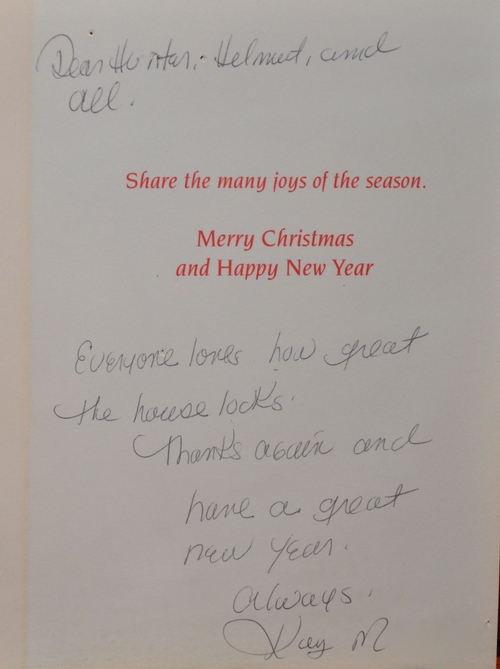 Dear Hunter, Helmut, and
all.
Share the many joys of the season.
Merry Christmas
and Happy New Year
Everyone loves how great
the house looks.
Thanks again and
have a great
new year.
Always,
Kay M